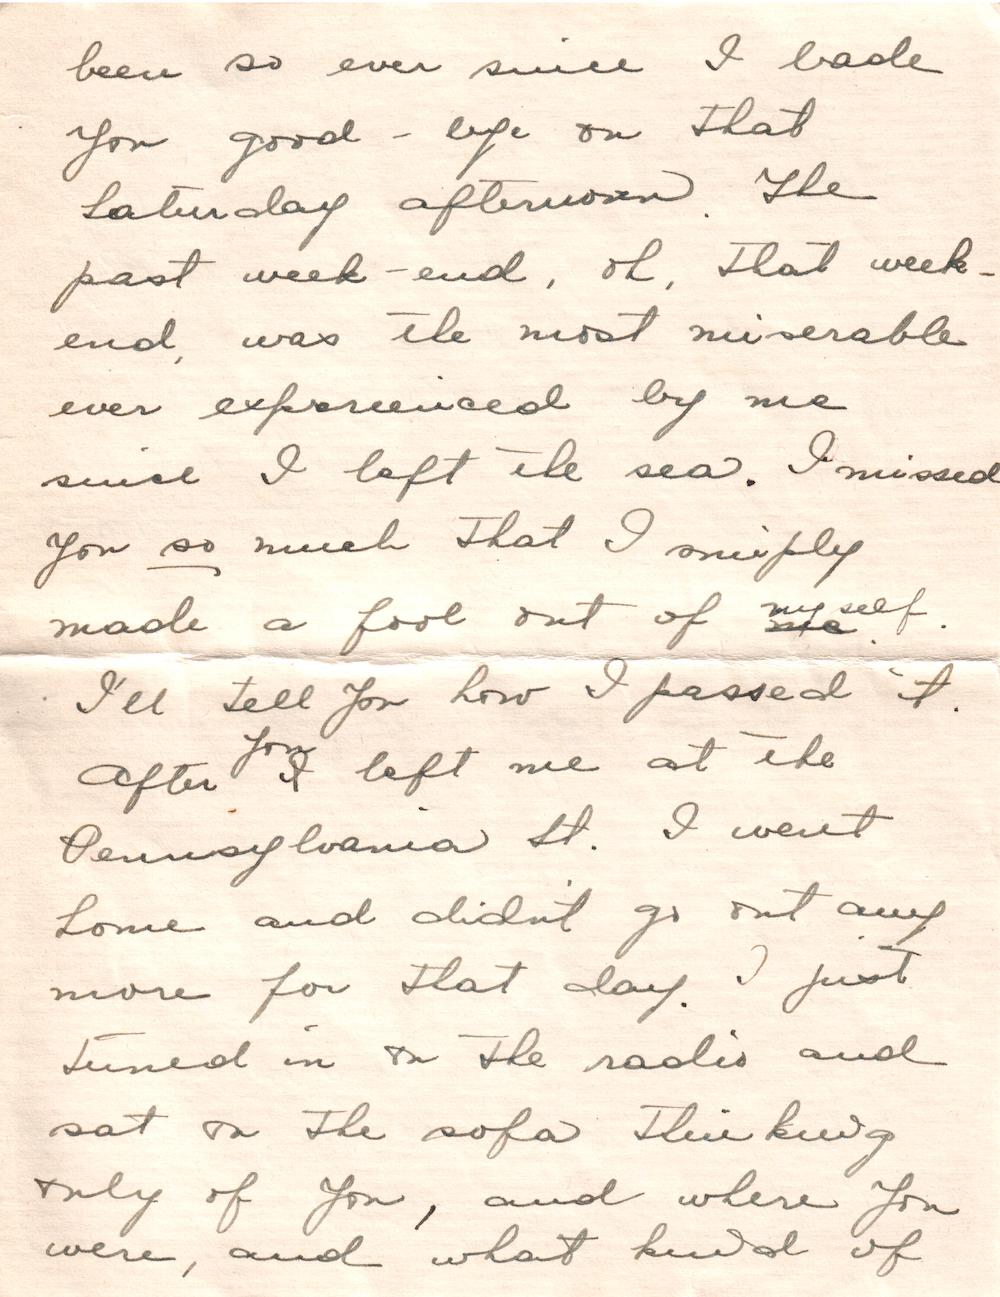 been so ever since I bade
you good-bye on that
Saturday afternoon. The
past week-end, oh, that week-
end, was the most miserable
ever experienced by me
since I left the sea. I missed
you so much that I simply
made a fool out of me myself.
I'll tell you how I passed it.
After I you left me at the
Pennsylvania St. I went
home and didn't go out any
more for that day. I just
tuned in on the radio and
sat on the sofa thinking
only of you, and where you
were, and what kind of